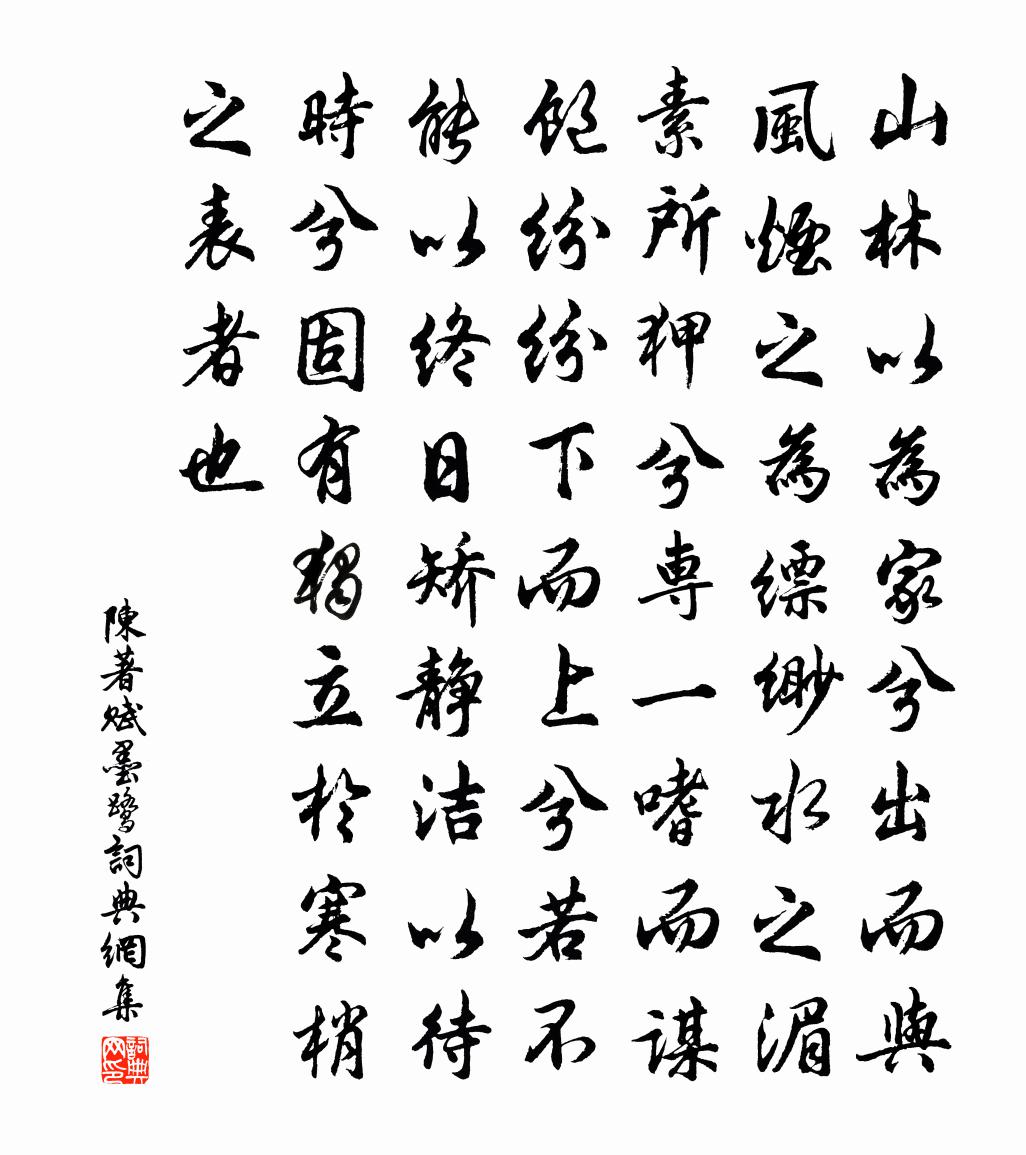 山林以為家兮出而與
風煙之為縹緲水之湄
素所狎兮専一嗜而謀
飽紛紛下而上兮若不
能以終日矫静洁以待
時兮固有獨立於寒梢
之表者也
陳著賦墨鹭詞典網集
詞典网印